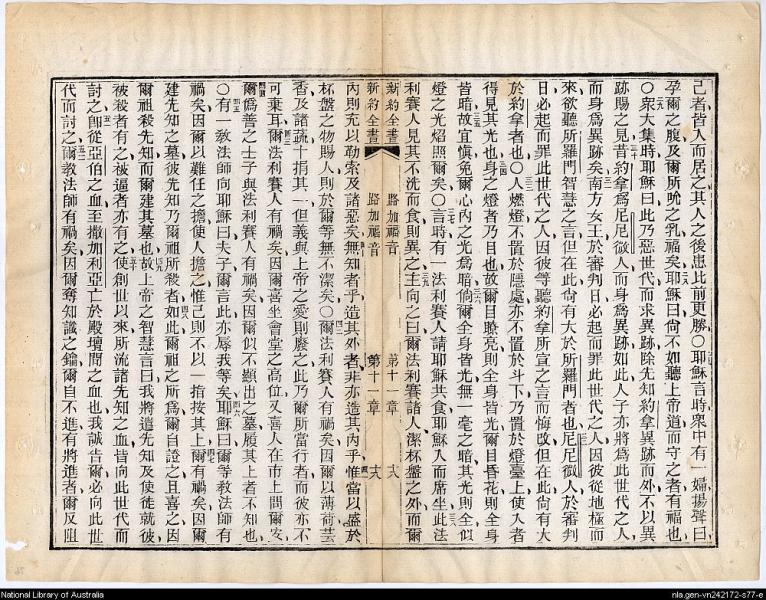 己者皆入而居之其人之後患比前更勝○耶穌言時衆中有一婦揚聲曰
孕爾之腹及爾所吮之乳福矣耶穌曰尙不如聽上帝道而守之者有福也
○衆大集時耶穌曰此乃惡世代而求異跡除先知約拿異跡而外不以異
跡賜之見昔約拿爲尼尼微人而身爲異跡如此人子亦將爲此世代之人
而身爲異跡矣南方女王於審判日必起而罪此世代之人因彼從地極而
來欲聽所羅門智慧之言但在此尙有大於所羅門者也尼尼微人於審判
日必起而罪此世代之人因彼等聽約拿所宣之言而悔改但在此尙有大
於約拿者也○人燃燈不置於隱處亦不置於斗下乃置於燈臺上使入者
得見其光也身之燈者乃目也故爾目瞭亮則全身皆光爾目昏花則全身
皆暗故宜愼免爾心內之光爲暗倘爾全身皆光無一毫之暗其光則全似
燈之光焰照爾矣○言時有一法利賽人請耶穌共食耶穌入而席坐此法
利賽人見其不洗而食則異之主向之曰爾法利賽諸人潔杯盤之外而爾
新約全書 路加福音 第十一章 六
新約全書 路加福音 第十一章 六
內則充以勒索及諸惡矣無知者乎造其外者非亦造其內乎惟當以盛於
杯盤之物賜人則於爾等無不潔矣○爾法利賽人有禍矣因爾以薄荷芸
香及諸蔬十捐其一但義與上帝之愛則廢之此乃爾所當行者而彼亦不
可棄耳爾法利賽人有禍矣因爾喜坐會堂之高位又喜人在市上問爾安
爾僞善之士子與法利賽人有禍矣因爾似不顯出之墓履其上者不知也
○有一敎法師向耶穌曰夫子爾言此亦辱我等矣耶穌曰爾等敎法師有
禍矣因爾以難任之擔使人擔之惟己則不以一指按其上爾有禍矣因爾
建先知之墓彼先知乃爾祖所殺者如此爾祖之所爲爾自證之且喜之因
爾祖殺先知而爾建其墓也故上帝之智慧言曰我將遣先知及使徒就彼
被殺者有之被逼者亦有之使創世以來所流諸先知之血皆向此世代而
討之卽從亞伯之血至撒加利亞亡於殿壇間之血也我誠告爾必向此世
代而討之爾敎法師有禍矣因爾奪知識之鑰爾自不進有將進者爾反阻
National Library of Australia
nla.gen-vn242172-s77-e